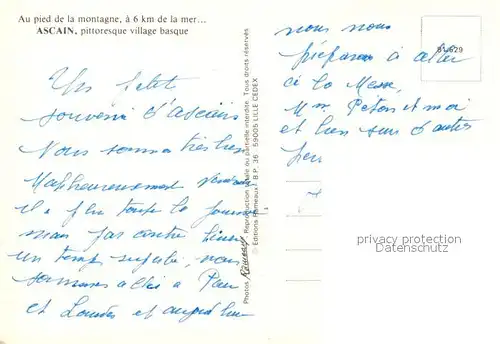 Au pied de la montagne, à 6 km de la mer...
ASCAIN, pittoresque village basque
Un petit
souvenir d'Ascain
Nous sommes très bien
Malheureusement
il a plu toute la journée
mais par contre hier
un temps superbe, nous
sommes allés à Pau
et Lourdes et aujourd'hui
Photos Reproduction totale ou partielle interdite. Tous droits réservés
© Editions Rameaux B.P. 36 59005 LILLE CEDEX
nous nous
préparons à aller
à la Messe,
Mm et moi
et bien sur d'autres
81/629
privacy protection
Datenschutz